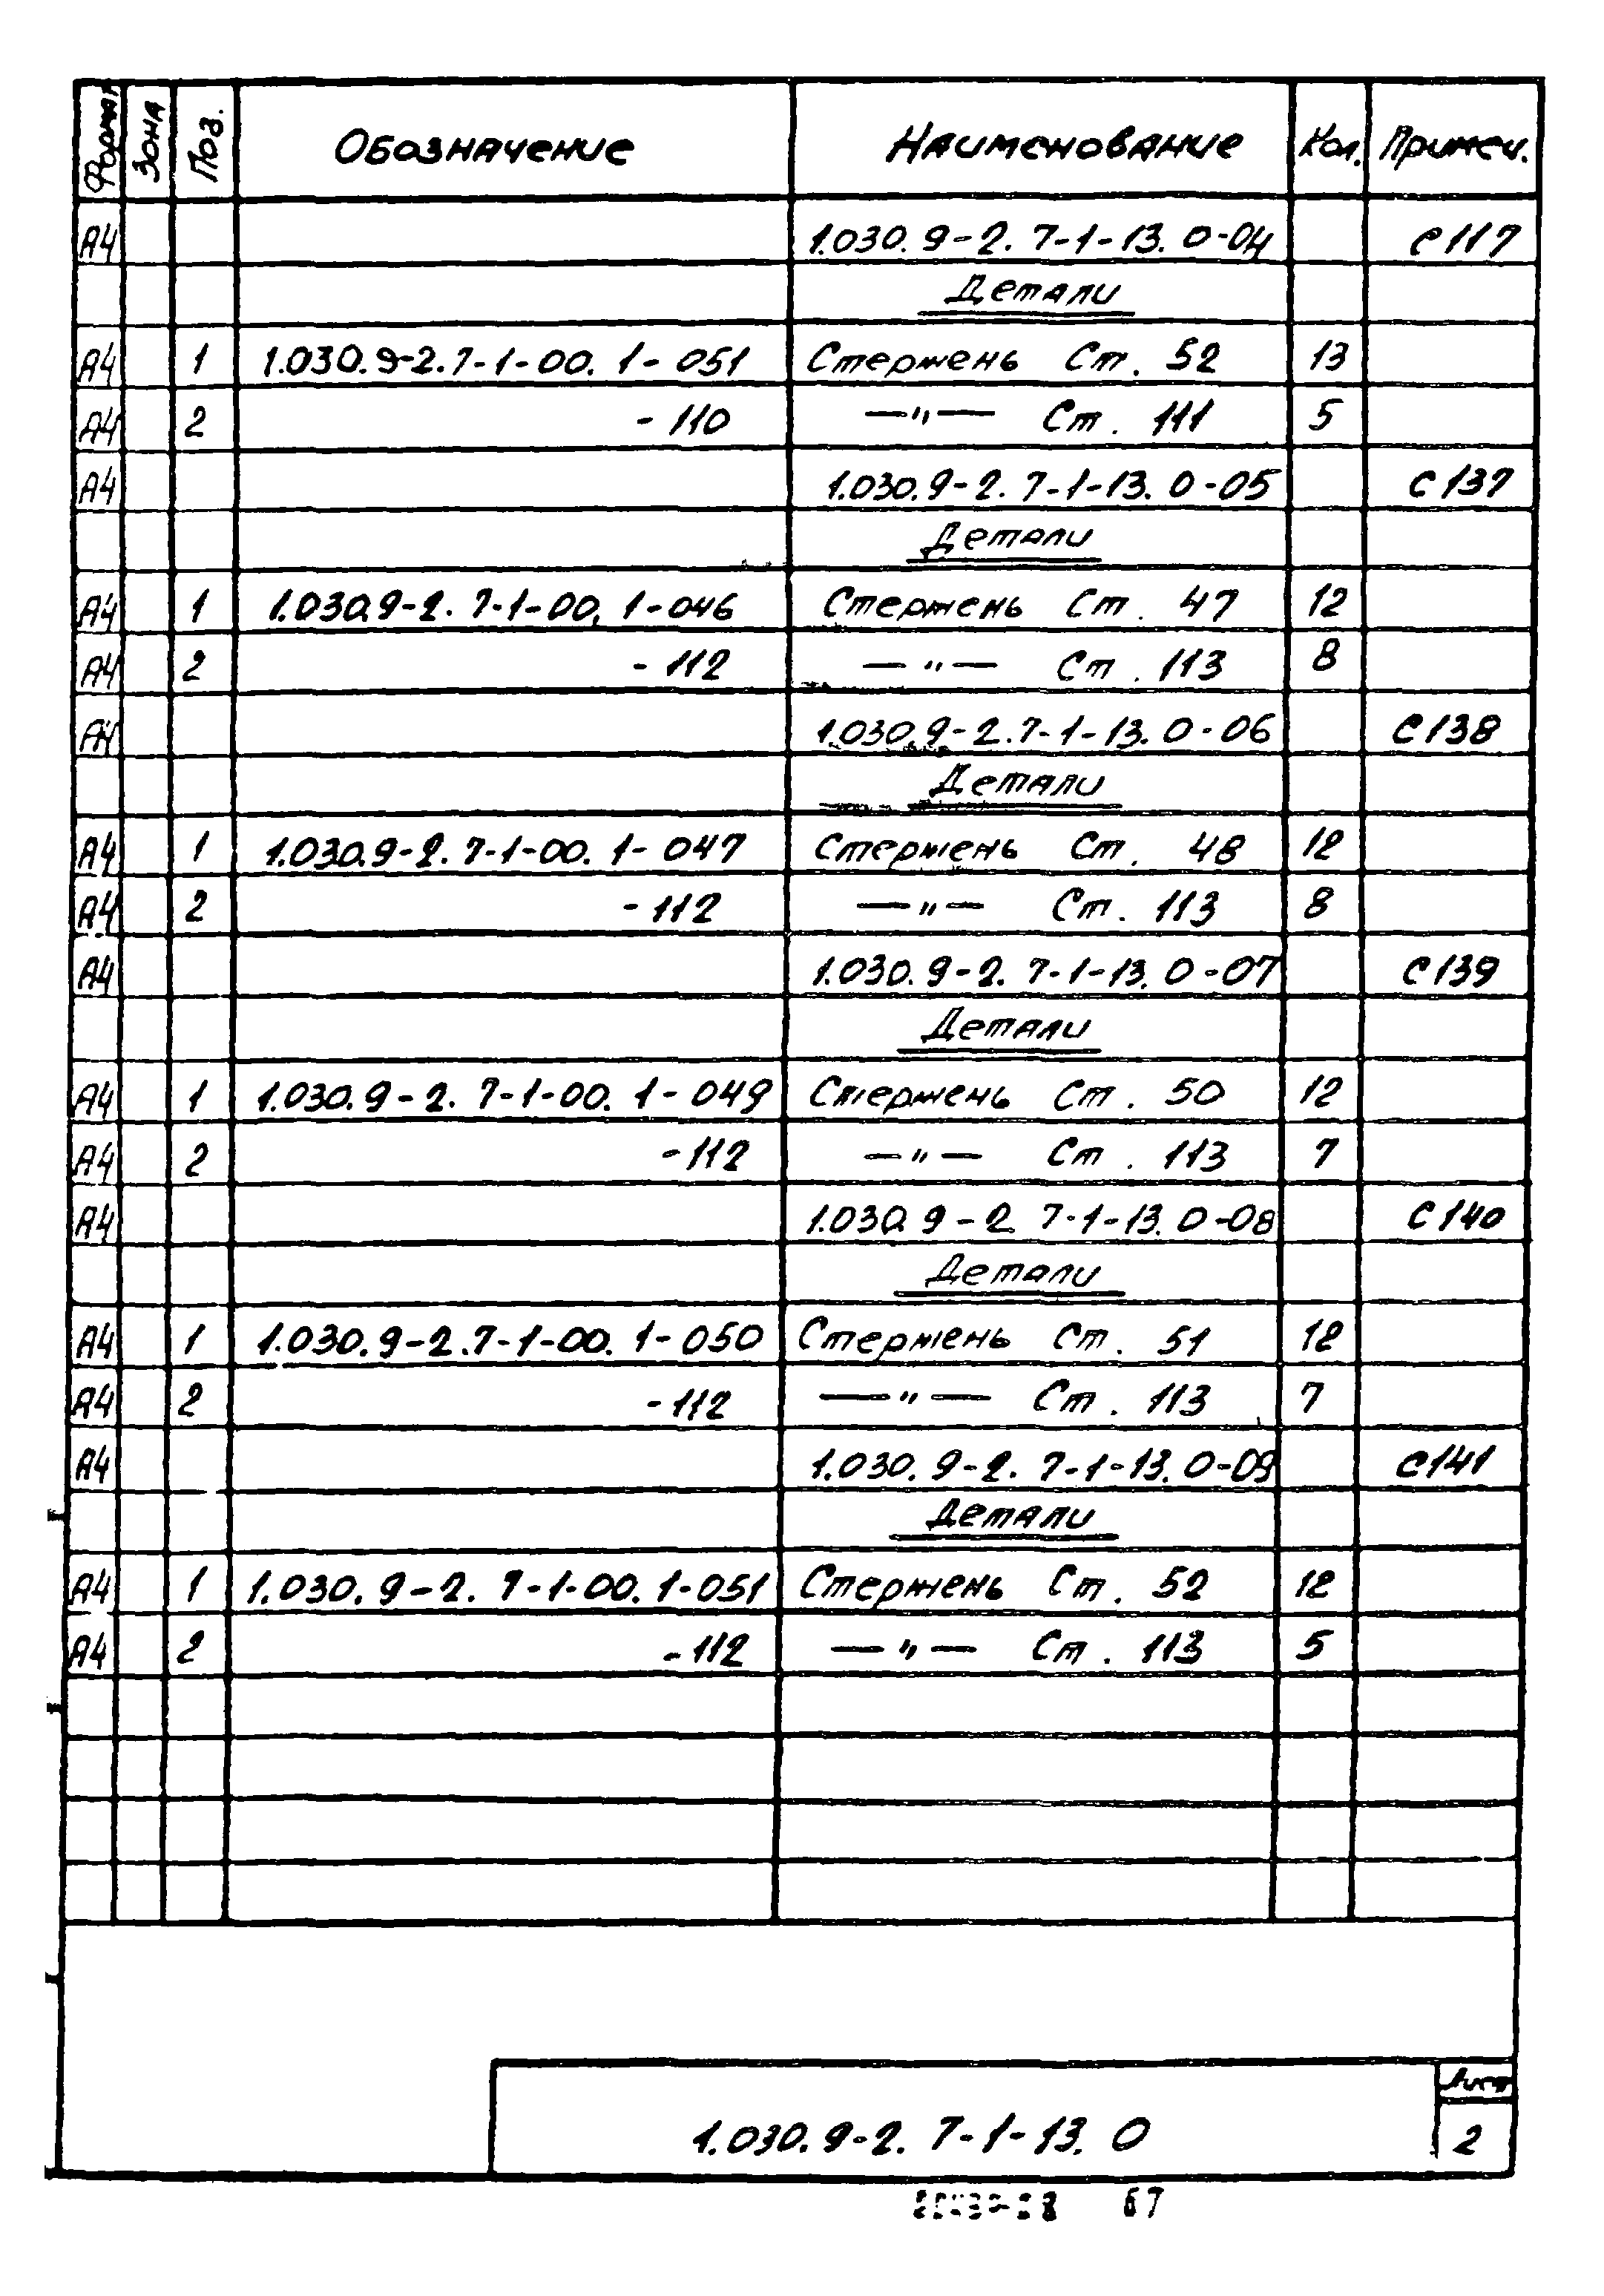 Формат Зона Поз. Обозначение Наименование Кол. Примеч.
А4 1.030.9-2.7-1-13.0-04 С117
Детали
А4 1 1.030.9-2.7-1-00.1-051 Стержень Ст. 52 13
А4 2 -110 —"— Ст. 111 5
А4 1.030.9-2.7-1-13.0-05 С137
Детали
А4 1 1.030.9-2.7-1-00.1-046 Стержень Ст. 47 12
А4 2 -112 —"— Ст. 113 8
А4 1.030.9-2.7-1-13.0-06 С138
Детали
А4 1 1.030.9-2.7-1-00.1-047 Стержень Ст. 48 12
А4 2 -112 —"— Ст. 113 8
А4 1.030.9-2.7-1-13.0-07 С139
Детали
А4 1 1.030.9-2.7-1-00.1-049 Стержень Ст. 50 12
А4 2 -112 —"— Ст. 113 7
А4 1.030.9-2 7-1-13.0-08 С140
Детали
А4 1 1.030.9-2.7-1-00.1-050 Стержень Ст. 51 12
А4 2 -112 —"— Ст. 113 7
А4 1.030.9-2.7-1-13.0-09 С141
Детали
А4 1 1.030.9-2.7-1-00.1-051 Стержень Ст. 52 12
А4 2 -112 —"— Ст. 113 5
Лист
1.030.9-2.7-1-13.0 2
67